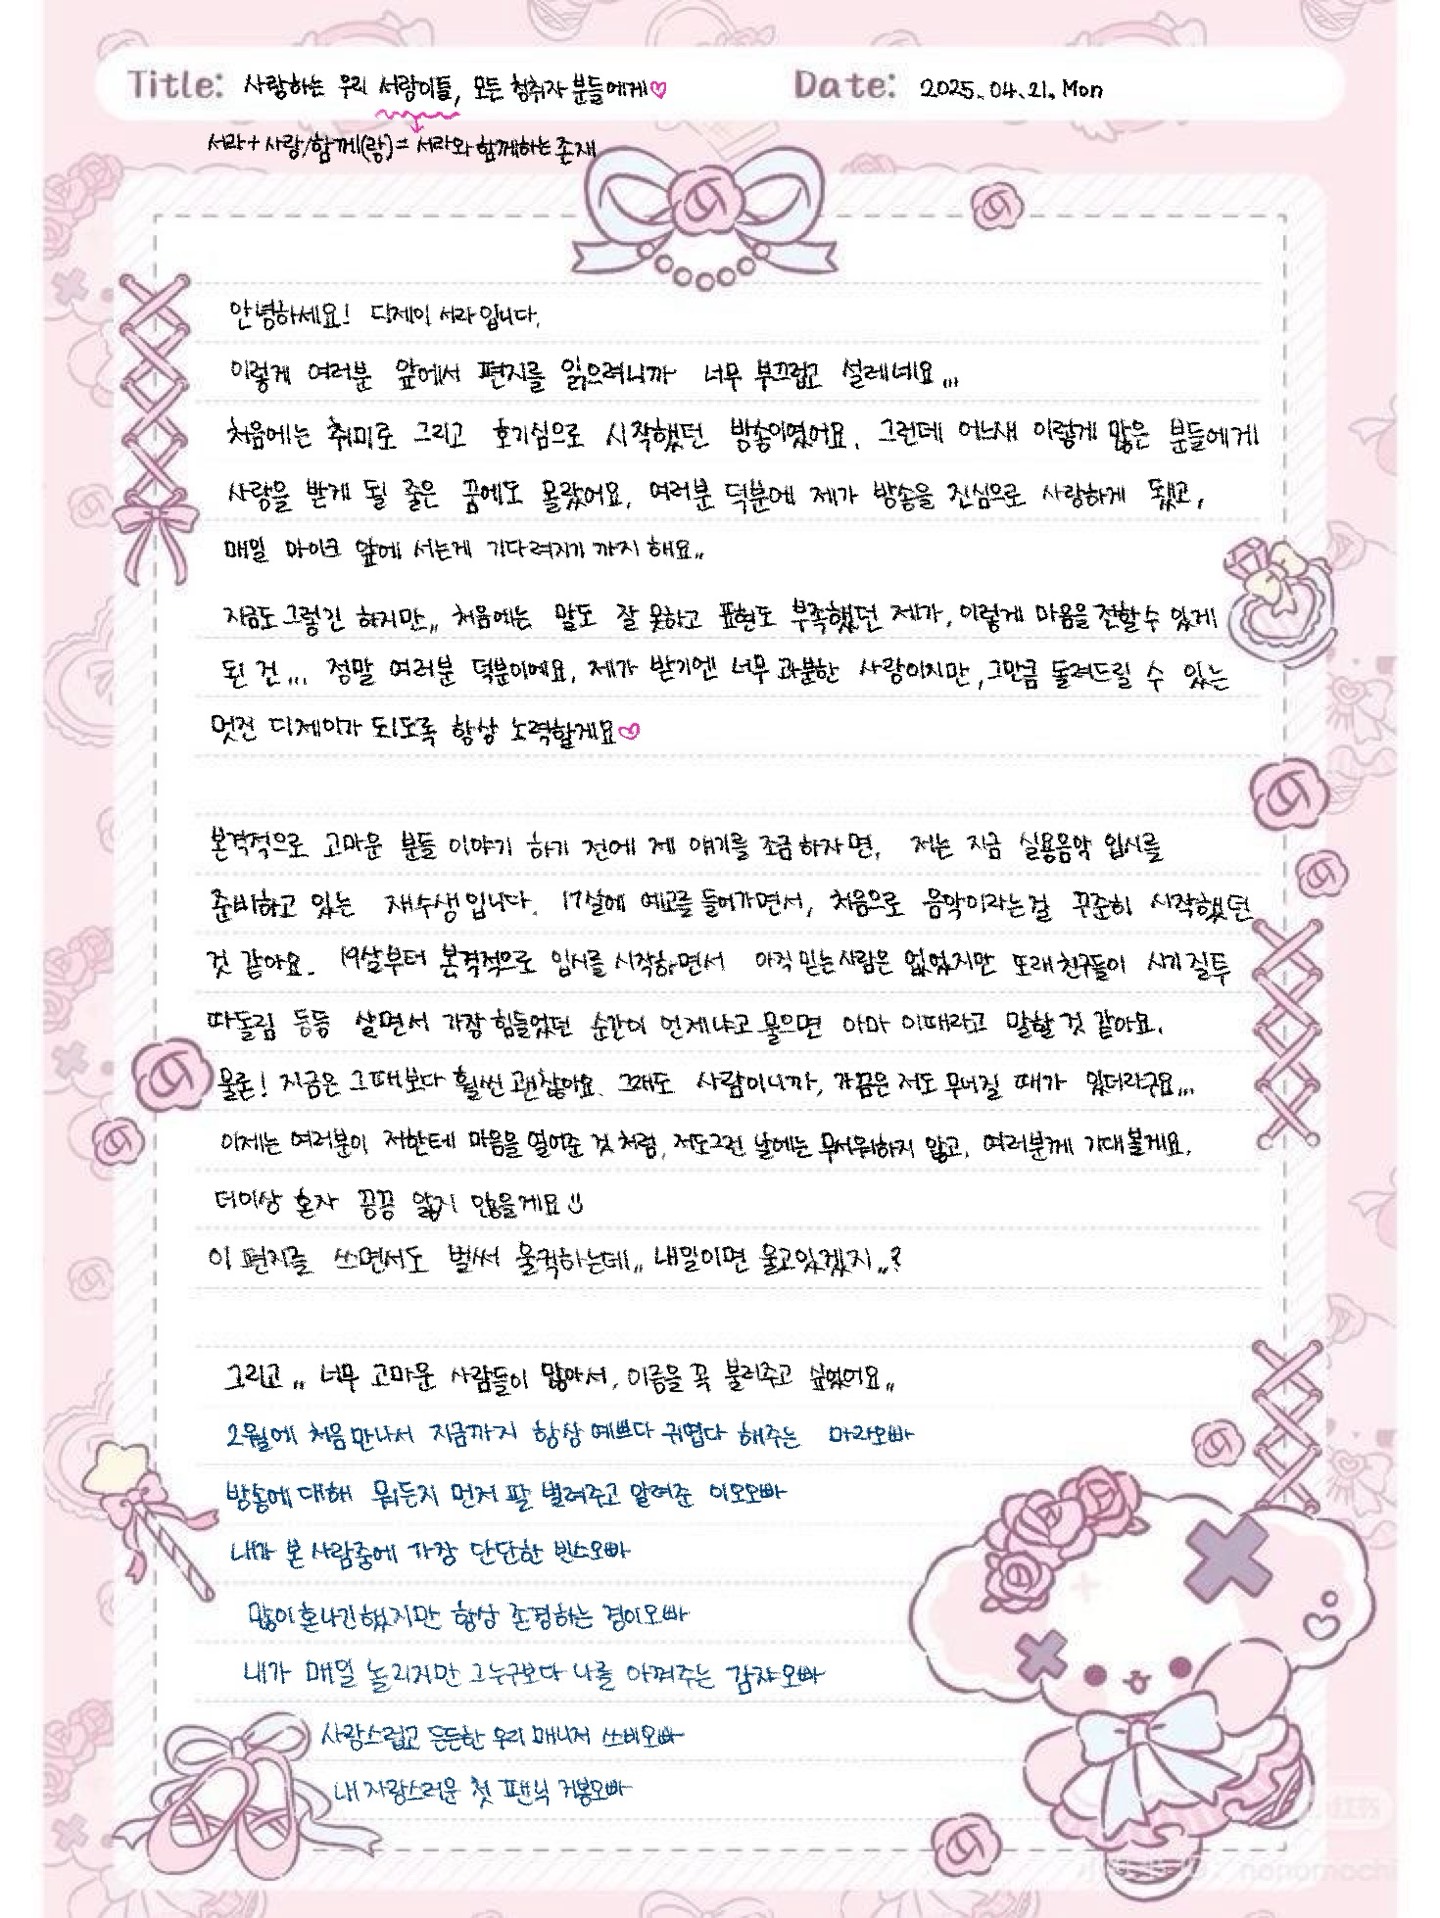 Title: 사랑하는 우리 서랑이들, 모든 청취자 분들에게♡
Date: 2025. 04. 21. Mon
서라+사랑/함께(랑)= 서라와 함께하는 존재
안녕하세요! 디제이 서라입니다.
이렇게 여러분 앞에서 편지를 읽으려니까 너무 부끄럽고 설레네요,,,
처음에는 취미로 그리고 호기심으로 시작했던 방송이였어요. 그런데 어느새 이렇게 많은 분들에게
사랑을 받게 될 줄은 꿈에도 몰랐어요. 여러분 덕분에 제가 방송을 진심으로 사랑하게 됐고,
매일 마이크 앞에 서는게 기다려지기 까지 해요,,
지금도 그렇긴 하지만,, 처음에는 말도 잘 못하고 표현도 부족했던 제가, 이렇게 마음을 전할 수 있게
된 건... 정말 여러분 덕분이에요. 제가 받기엔 너무 과분한 사랑이지만, 그만큼 돌려드릴 수 있는
멋진 디제이가 되도록 항상 노력할게요♡
본격적으로 고마운 분들 이야기 하기 전에 제 얘기를 조금 하자면, 저는 지금 실용음악 입시를
준비하고 있는 재수생입니다. 17살에 예고를 들어가면서, 처음으로 음악이라는걸 꾸준히 시작했던
것 같아요. 19살부터 본격적으로 입시를 시작하면서 아직 믿는사람은 없었지만 또래친구들이 시기 질투
따돌림 등등 살면서 가장 힘들었던 순간이 언제냐고 물으면 아마 이때라고 말할 것 같아요.
물론! 지금은 그때보다 훨씬 괜찮아요. 그래도 사람이니까, 가끔은 저도 무너질 때가 있더라구요,,,
이제는 여러분이 저한테 마음을 열어준 것 처럼, 저도그런 날에는 무서워하지 않고, 여러분께 기대볼게요.
더이상 혼자 끙끙 앓지 않을게요
이 편지를 쓰면서도 벌써 울컥하는데,, 내일이면 울고있겠지,,?
그리고,, 너무 고마운 사람들이 많아서, 이름을 꼭 불러주고 싶었어요,,
2월에 처음만나서 지금까지 항상 예쁘다 귀엽다 해주는 마라오빠
방송에 대해 뭐든지 먼저 팔 벌려주고 알려준 이오오빠
내가 본 사람중에 가장 단단한 빈스오빠
많이혼나긴했지만 항상 존경하는 경이오빠
내가 매일 놀리지만 그누구보다 나를 아껴주는 감쟈오빠
사랑스럽고 든든한 우리 매니저 쓰비오빠
내 자랑스러운 첫 팬닉 커봉오빠
nonomochi